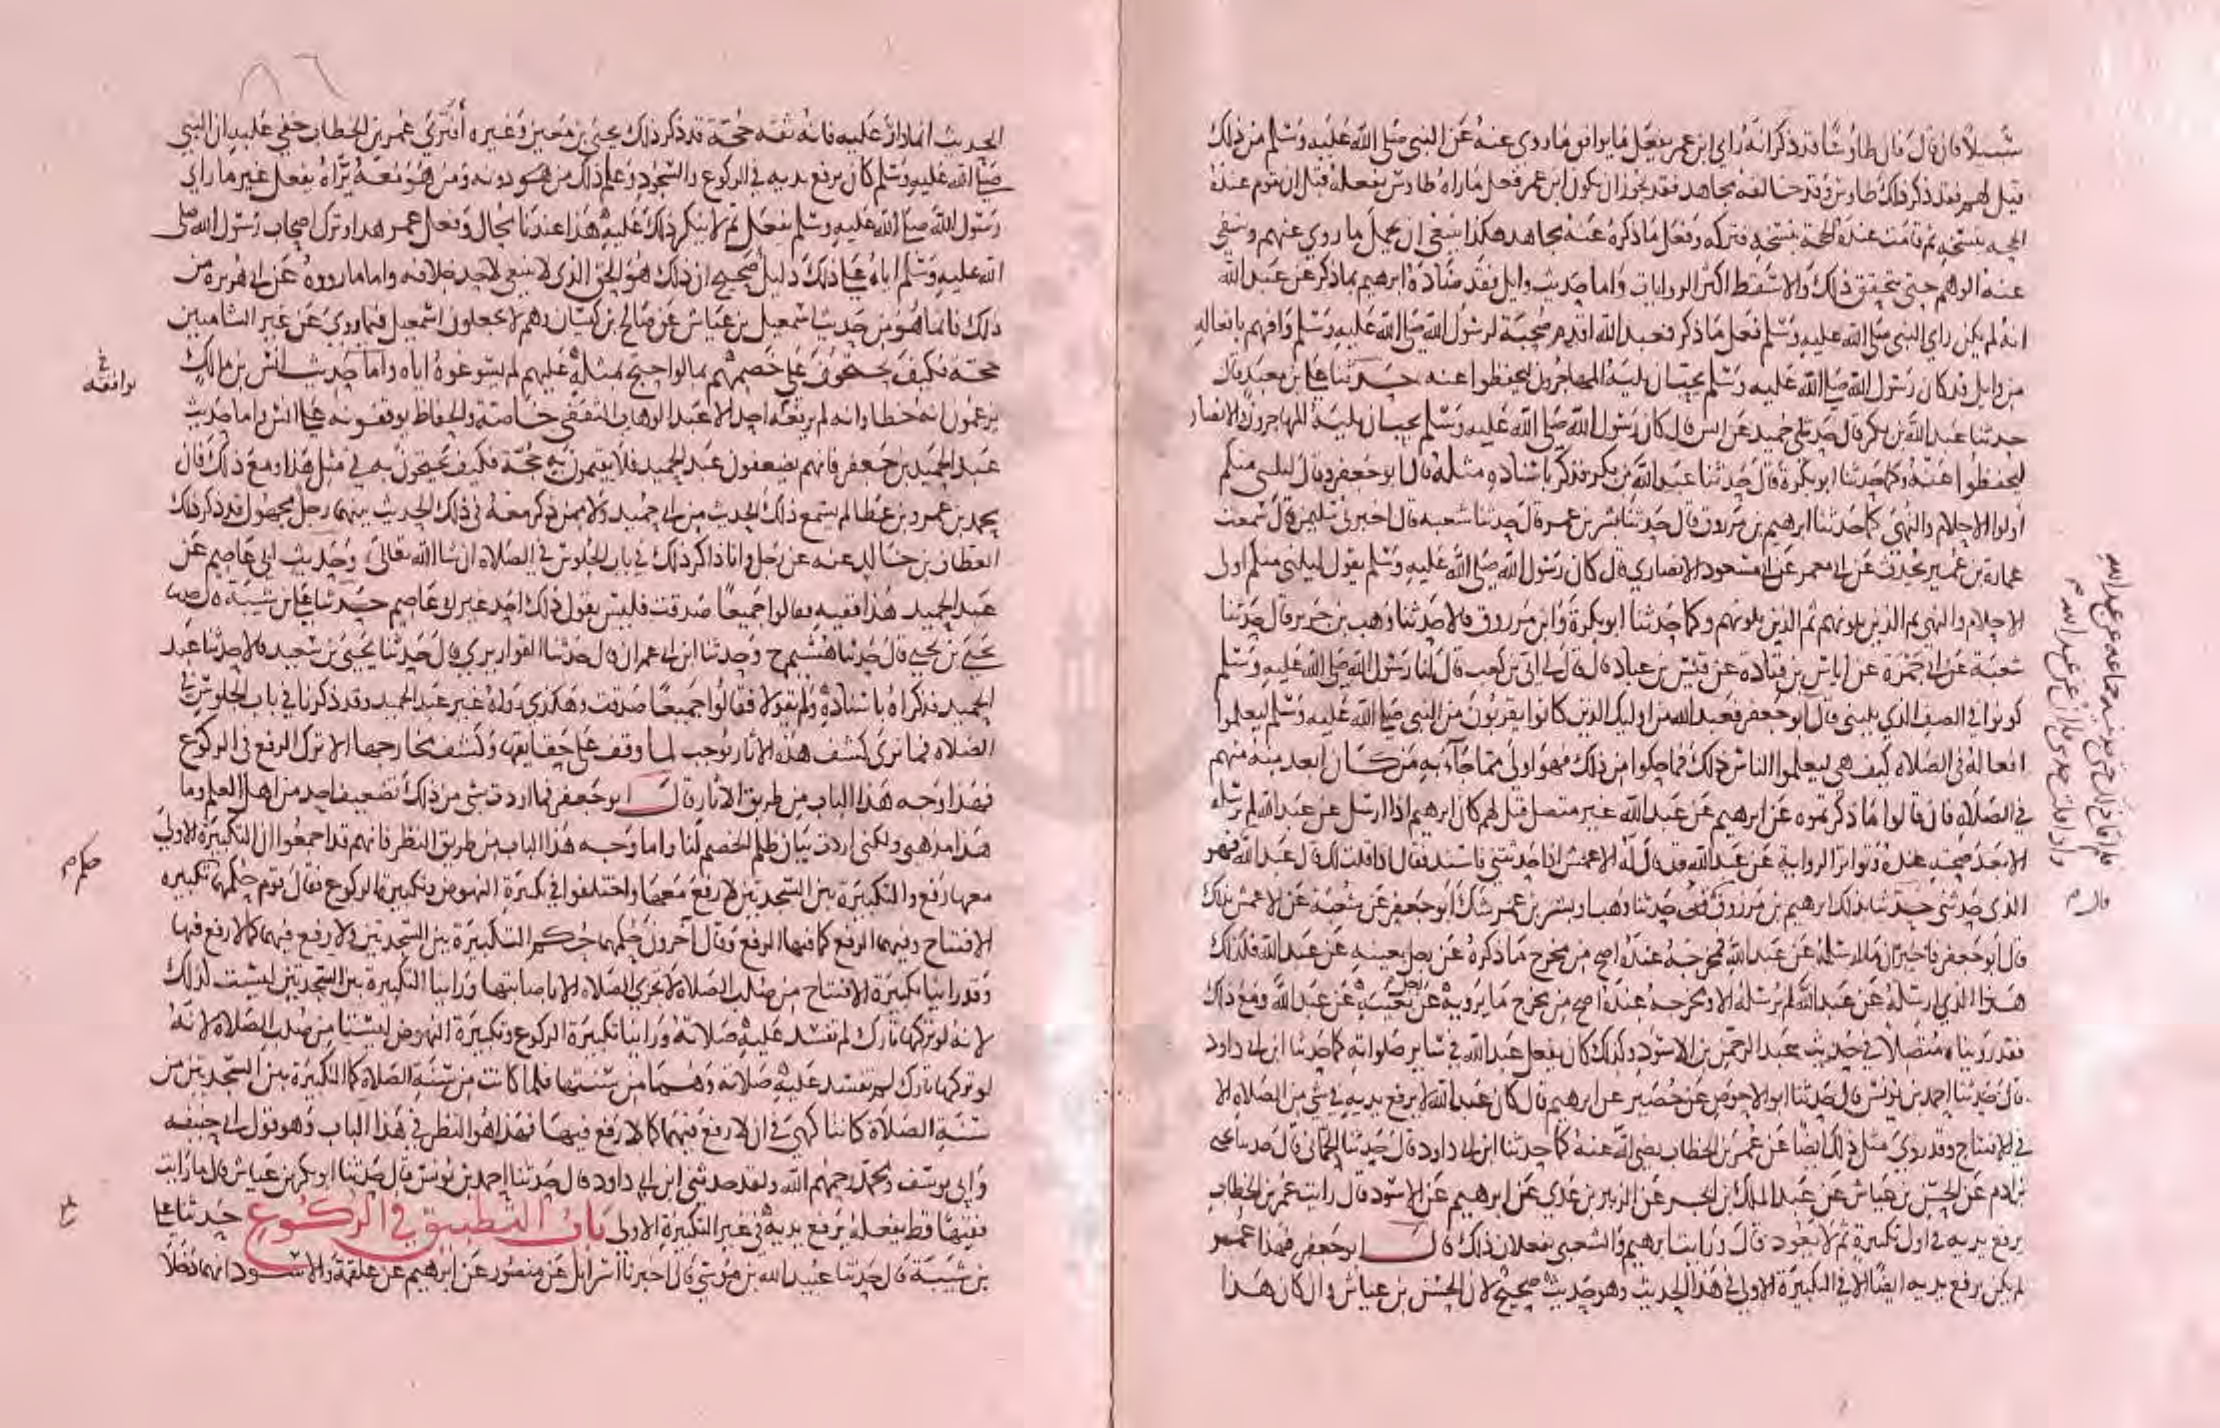 سبيلا فان قال قال طاوسا قد ذكر انه راى ابن عمر يفعل ما يوافق ما روي عنه عن النبي صلى الله عليه وسلم من ذلك
قيل لهم فقد ذكر ذلك طاوس وقد خالفه مجاهد فقد يجوز ان يكون ابن عمر فعل ما راه طاوس يفعله قبل ان تقوم عنده
الحجة بنسخه ثم قامت عنده الحجة بنسخه فتركه وفعل ما ذكره عنه مجاهد هكذا ينبغي ان يحمل ما روي عنهم وينفى
عنه الوهم حتى يتحقق ذلك والا سقط اكثر الروايات واما حديث وايل فقد ضاده ابرهيم بما ذكر عن عبد الله
انه لم يكن راى النبي صلى الله عليه وسلم فعل ما ذكر فعبد الله اقدم صحبة لرسول الله صلى الله عليه وسلم وافهم بافعاله
من وايل قد كان رسول الله صلى الله عليه وسلم يحب ان يليه المهاجرون ليحفظوا عنه حدثنا علي بن معبد قال
حدثنا عبد الله بن بكر قال حدثني حميد عن انس قال كان رسول الله صلى الله عليه وسلم يحب ان يليه المهاجرون والانصار
ليحفظوا عنه وكما حدثنا ابو بكرة قال حدثنا عبد الله بن بكر فذكر باسناده مثله قال ابو جعفر وقال ليلني منكم
اولوا الاحلام والنهى كما حدثنا ابرهيم بن مرزوق قال حدثنا بشر بن عمر قال حدثنا شعبة قال اخبرني سليمن قال سمعت
عمارة بن عمير يحدث عن ابي معمر عن ابي مسعود الانصاري قال كان رسول الله صلى الله عليه وسلم يقول ليليني منكم اولى
الاحلام والنهى ثم الذين يلونهم ثم الذين يلونهم وكما حدثنا ابو بكرة وابن مرزوق قالا حدثنا وهب بن جرير قال حدثنا
شعبة عن ابي جمرة عن اياس بن قتادة عن قيس بن عباد قال قال لي ابي بن كعب قال لنا رسول الله صلى الله عليه وسلم
كونوا في الصف الذي يليني قال ابو جعفر فعبد الله من اوليك الذين كانوا يقربون من النبي صلى الله عليه وسلم ليعلموا
افعاله في الصلاه كيف هي ليعلموا الناس ذلك فما حكوا من ذلك فهو اولى مما جاء به من كان ابعد منه منهم
في الصلاه فان قالوا ما ذكرتموه عن ابرهيم عن عبد الله غير متصل قيل لهم كان ابرهيم اذا ارسل عن عبد الله لم يرسله
الا بعد صحته عنده وتواتر الرواية عن عبد الله قد قال له الاعمش اذا حدثتني فاسند فقال اذا قلت لك قال عبد الله فهو
الذي حدثني حدثنا بذلك ابرهيم بن مرزوق قال حدثنا وهب او بشر بن عمر شك ابو جعفر عن شعبة عن الاعمش بذلك
قال ابو جعفر فاخبر ان ما ارسله عن عبد الله فمخرجه عنده اصح من مخرج ما ذكره عن رجل بعينه عن عبد الله فكذلك
هذا الذي ارسله عن عبد الله لم يرسله الا ومخرجه عنده اصح من مخرج ما يرويه عن رجل بعينه عن عبد الله ومع ذلك
فقد رويناه متصلا في حديث عبد الرحمن بن الاسود وكذلك كان يفعل عبد الله في ساير صلواته كما حدثنا ابن ابي داود
قال حدثنا احمد بن يونس قال حدثنا ابو الاحوص عن حصين عن ابرهيم قال كان عبد الله لا يرفع يديه في شي من الصلاه الا
في الافتتاح وقد روي مثل ذلك ايضا عن عمر بن الخطاب رضي الله عنه كما حدثنا ابن ابي داود قال حدثنا الحماني قال حدثنا يحيى
بن ادم عن الحسن بن عياش عن عبد الملك بن ابجر عن الزبير بن عدي عن ابرهيم عن الاسود قال رايت عمر بن الخطاب
يرفع يديه في اول تكبيرة ثم لا يعود قال ورايت ابرهيم والشعبي يفعلان ذلك قال ابو جعفر فهذا عمر
لم يكن يرفع يديه ايضا الا في التكبيرة الاولى في هذا الحديث وهو حديث صحيح لان الحسن بن عياش وان كان هذا
قال م
٨٦
الحديث انما دار عليه فانه ثقة حجة قد ذكر ذلك يحيى بن معين وغيره افترى عمر بن الخطاب خفي عليه ان النبي
صلى الله عليه وسلم كان يرفع يديه في الركوع والسجود وعلم ذلك من هو دونه ومن هو معه يراه يفعل غير ما راى
رسول الله صلى الله عليه وسلم يفعل ثم لا ينكر ذلك عليه هذا عندنا محال وفعل عمر هذا وترك اصحاب رسول الله صلى
الله عليه وسلم اياه على ذلك دليل صحيح ان ذلك هو الحق الذي لا ينبغي لاحد خلافه واما ما رووه عن ابي هريرة من
ذلك فانما هو من حديث اسمعيل بن عياش عن صالح بن كيسان وهم لا يجعلون اسمعيل فيما روى عن غير الشاميين
حجة فكيف يحتجون على خصمهم بما لو احتج بمثله عليهم لم يسوغوه اياه واما حديث انس بن مالك
يزعمون انه خطا وانه لم يرفعه احد الا عبد الوهاب الثقفي خاصة والحفاظ يوقفونه على انس واما حديث
عبد الحميد بن جعفر فانهم يضعفون عبد الحميد فلا يقيمون به حجة فكيف يحتجون به في مثل هذا ومع ذلك فان
محمد بن عمرو بن عطا لم يسمع ذلك الحديث من ابي حميد ولا ممن ذكر معه في ذلك الحديث بينهما رجل مجهول قد ذكر ذلك
العطاف بن خالد عنه عن رجل وانا ذاكر ذلك في باب الجلوس في الصلاه ان شا الله تعالى وحديث ابي عاصم عن
عبد الحميد هذا ففيه فقالوا جميعا صدقت فليس يقول ذلك احد غير ابي عاصم حدثنا علي بن شيبة قال حدثنا
يحيى بن يحيى قال حدثنا هشيم ح وحدثنا ابن ابي عمران قال حدثنا القواريري قال حدثنا يحيى بن سعيد قالا حدثنا عبد
الحميد فذكراه باسناده ولم يقولا فقالوا جميعا صدقت وهكذى رواه غير عبد الحميد وقد ذكرنا في باب الجلوس في
الصلاه فما نرى كشف هذه الاثار يوجب لما وقف على حقايقها وكشف مخارجها الا ترك الرفع في الركوع
فهذا وجه هذا الباب من طريق الاثار قال ابو جعفر فما اردت بشي من ذلك تضعيف احد من اهل العلم وما
هذا مذهبي ولكني اردت بيان ظلم الخصم لنا واما وجه هذا الباب من طريق النظر فانهم قد اجمعوا ان التكبيرة الاولى
معها رفع والتكبيرة بين السجدتين لا رفع معها واختلفوا في تكبيرة النهوض وتكبيرة الركوع فقال قوم حكمها تكبيره
الافتتاح وفيهما الرفع كما فيها الرفع وقال آخرون حكمهما حكم التكبيرة بين السجدتين لا رفع فيهما كما لا رفع فيها
وقد راينا تكبيرة الافتتاح من صلب الصلاة لا تجزي الصلاه الا باصابتها وراينا التكبيرة بين السجدتين ليست كذلك
لانه لو تركها تارك لم تفسد عليه صلاته وراينا تكبيرة الركوع وتكبيرة النهوض ليستا من صلب الصلاة لانه
لو تركها تارك لم تفسد عليه صلاته وهما من سنتها فلما كانت من سنة الصلاة كما التكبيرة بين السجدتين من
سنة الصلاة كانتا كهي في ان لا رفع فيهما كما لا رفع فيها فهذا هو النظر في هذا الباب وهو قول ابي حنيفة
وابي يوسف ومحمد رحمهم الله ولقد حدثني ابن ابي داود قال حدثنا احمد بن يونس قال حدثنا ابو بكر بن عياش قال ما رايت
فقيها قط يفعله يرفع يديه في غير التكبيرة الاولى باب التطبيق في الركوع حدثنا علي
بن شيبة قال حدثنا عبيد الله بن موسى قال اخبرنا اسرائيل عن منصور عن ابرهيم عن علقمة والاسود انهما دخلا
حكم م